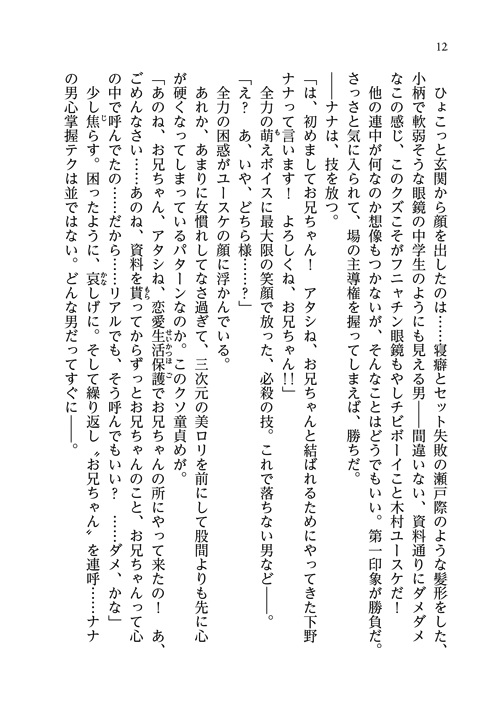 12
　ひょこっと玄関から顔を出したのは……寝癖とセット失敗の瀬戸際のような髪形をした、
小柄で軟弱そうな眼鏡の中学生のようにも見える男――間違いない、資料通りにダメダメ
なこの感じ、このクズこそがフニャチン眼鏡もやしチビボーイこと木村ユースケだ！
　他の連中が何なのか想像もつかないが、そんなことはどうでもいい。第一印象が勝負だ。
さっさと気に入られて、場の主導権を握ってしまえば、勝ちだ。
――ナナは、技を放つ。
「は、初めましてお兄ちゃん！　アタシね、お兄ちゃんと結ばれるためにやってきた下野
ナナって言います！　よろしくね、お兄ちゃん!!」
　全力の萌えボイスに最大限の笑顔で放った、必殺の技。これで落ちない男など――。
「え？　あ、いや、どちら様……？」
　全力の困惑がユースケの顔に浮かんでいる。
　あれか、あまりに女慣れしてなさ過ぎて、三次元の美ロリを前にして股間よりも先に心
が硬くなってしまっているパターンなのか。このクソ童貞めが。
「あのね、お兄ちゃん、アタシね、恋愛生活保護でお兄ちゃんの所にやって来たの！　あ、
ごめんなさい……あのね、資料を貰ってからずっとお兄ちゃんのこと、お兄ちゃんって心
の中で呼んでたの……だから……リアルでも、そう呼んでもいい？　……ダメ、かな」
　少し焦らす。困ったように、哀しげに。そして繰り返し〝お兄ちゃん〟を連呼……ナナ
の男心掌握テクは並ではない。どんな男だってすぐに――。